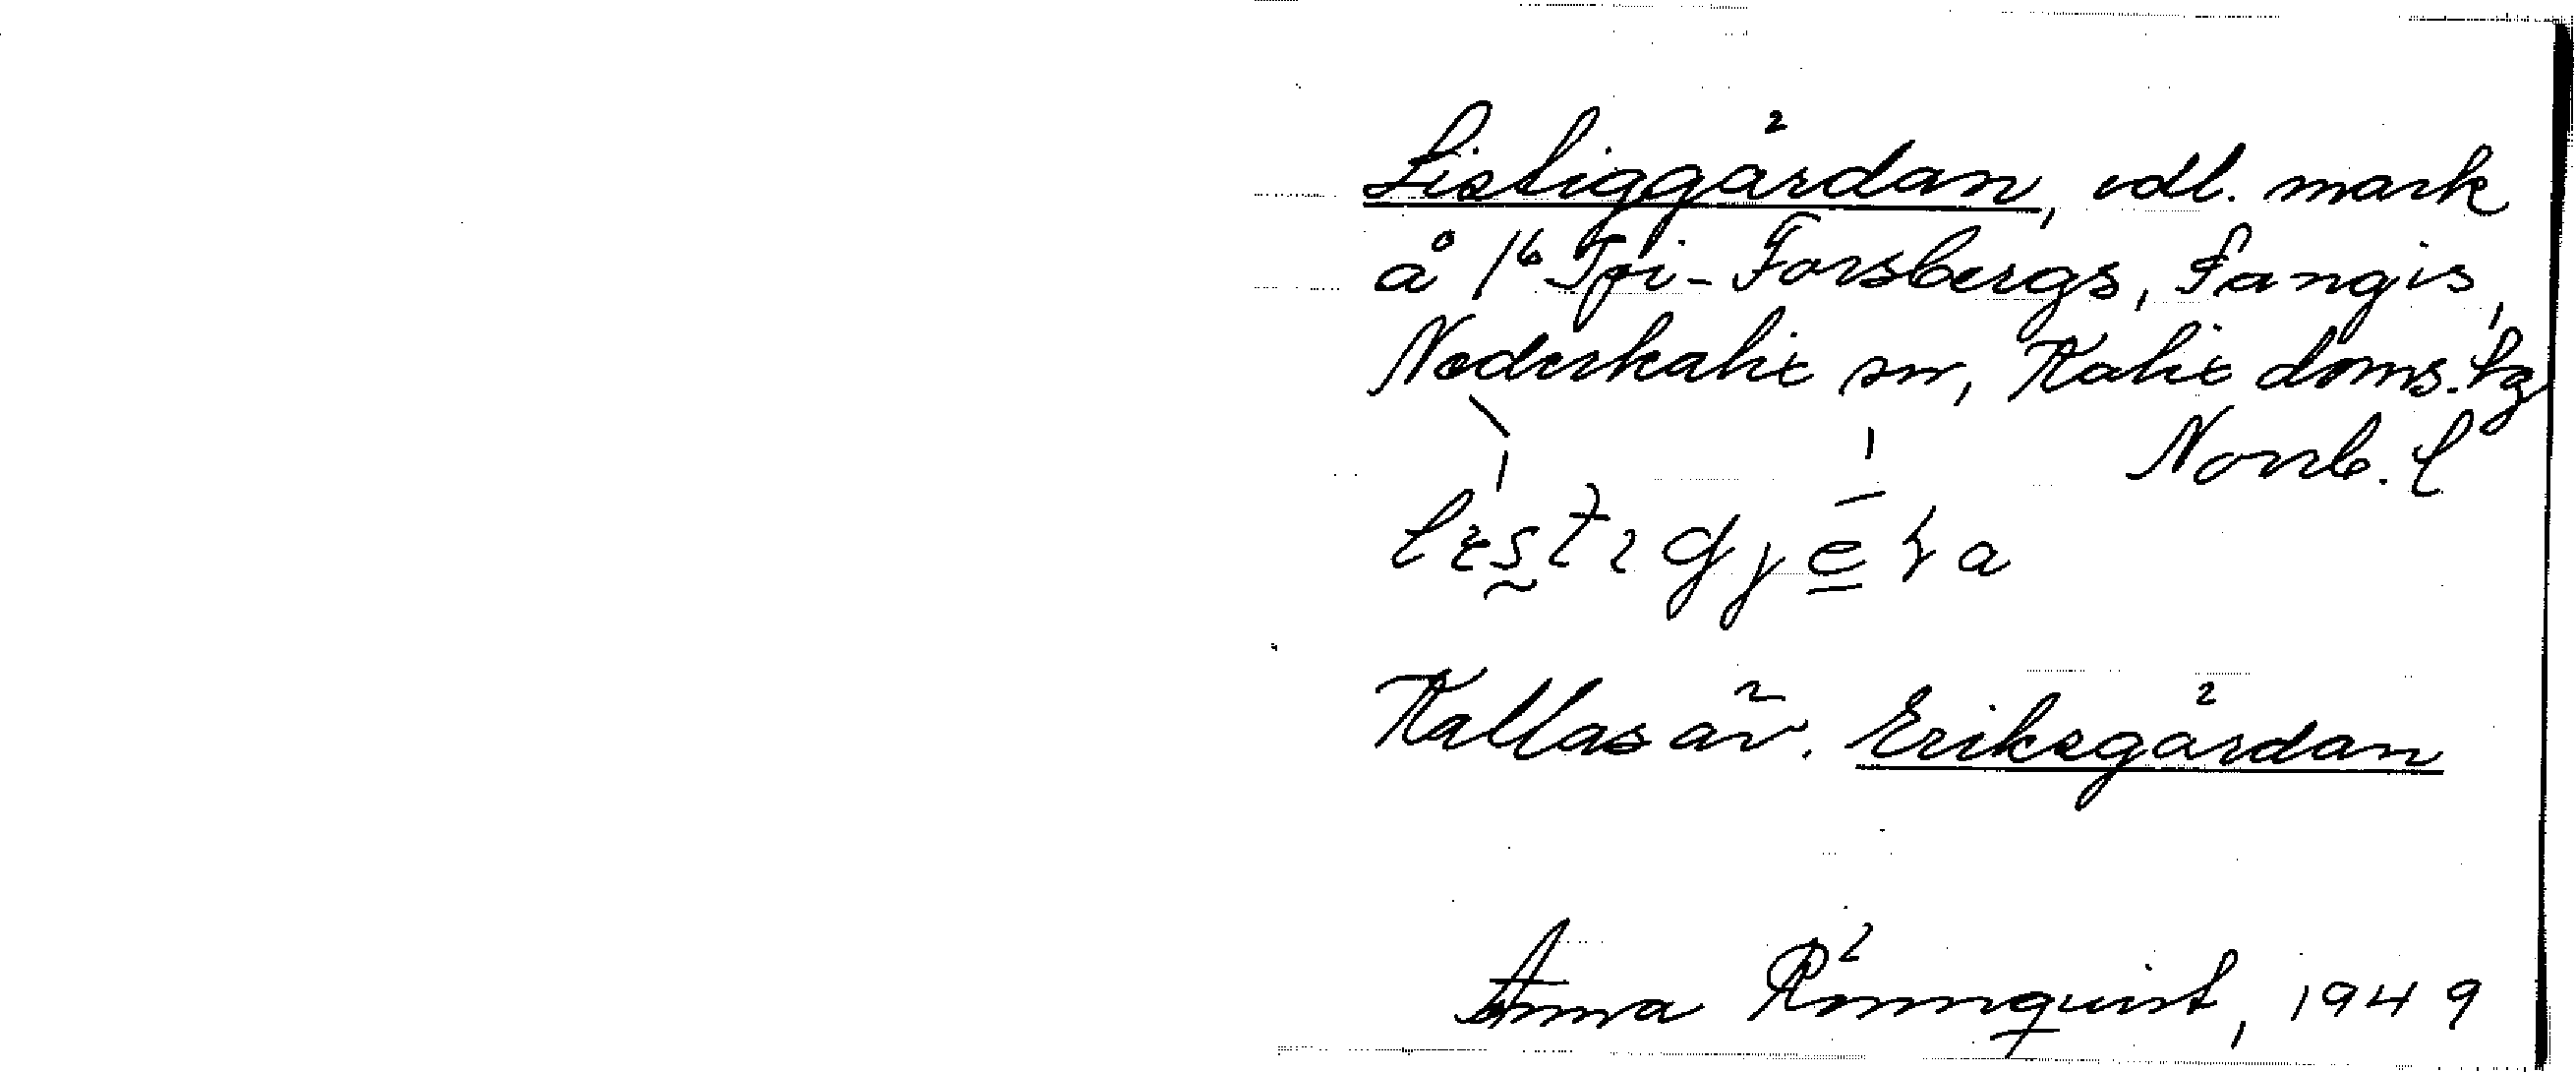 Listiggärdan, odl. mark
å 1⁶ Tpi-Forsbergs, Sangis,
Nederkalix sn, Kalix doms. lg
Norrb. l
Kallas äv. Eriksgärdan
Anna Rönnquist, 1949